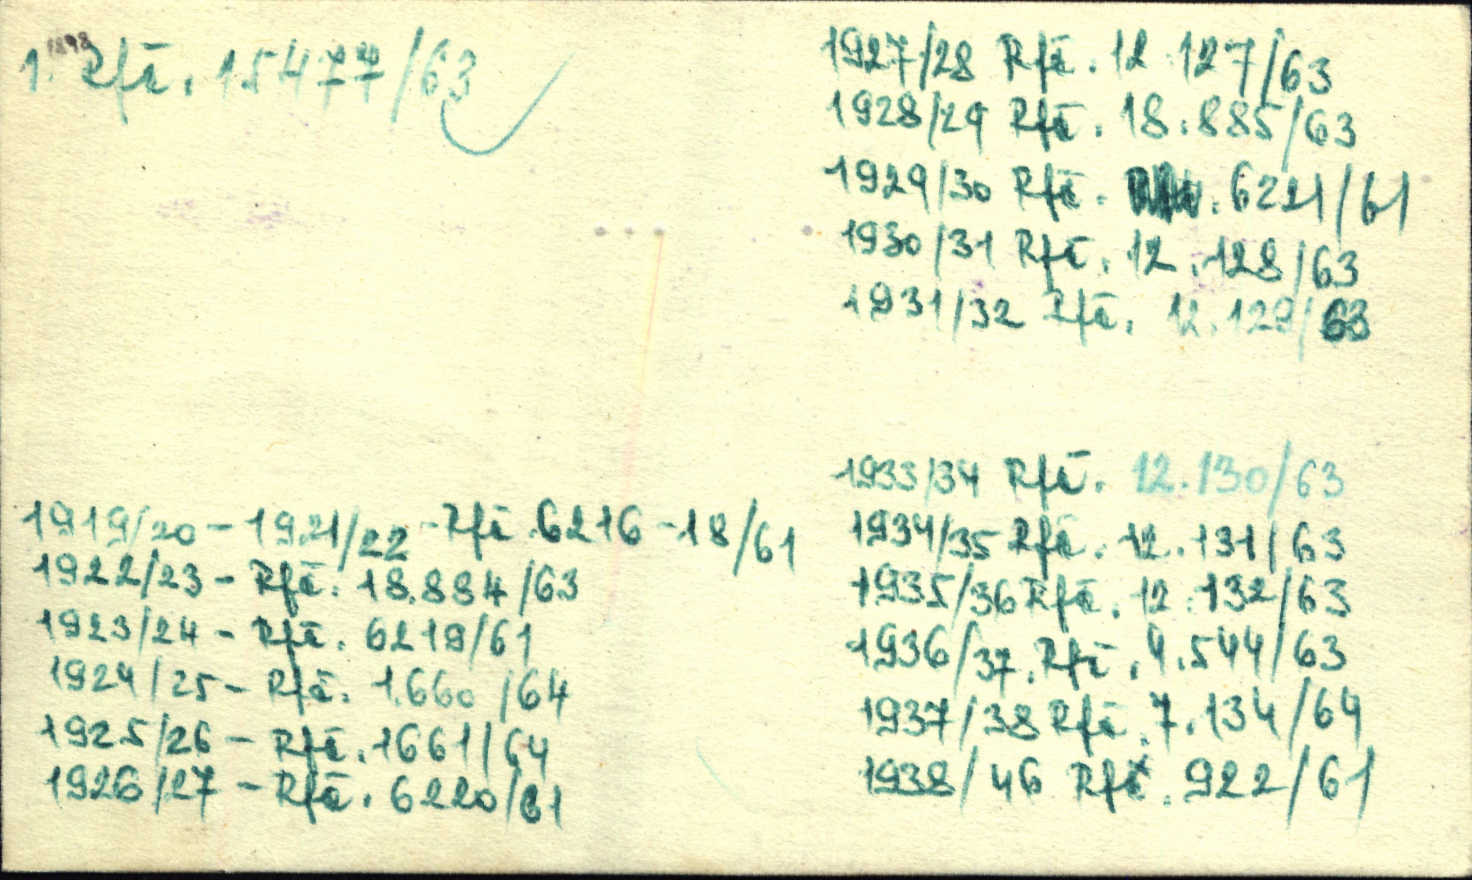 1. 1898 Rfā. 15477/63
1919/20 - 1921/22 - Rfā. 6216-18/61
1922/23 - Rfā. 18.884/63
1923/24 - Rfā. 6219/61
1924/25 - Rfā. 1.660/64
1925/26 - Rfā. 1661/64
1926/27 - Rfā. 6220/61
1927/28 Rfā. 12.127/63
1928/29 Rfā. 18.885/63
1929/30 Rfā. 6221/61
1930/31 Rfā. 12.128/63
1931/32 Rfā. 12.129/63
1933/34 Rfā. 12.130/63
1934/35 Rfā. 12.131/63
1935/36 Rfā. 12.132/63
1936/37. Rfā. 4.544/63
1937/38 Rfā. 7.134/64
1938/46 Rfā. 922/61